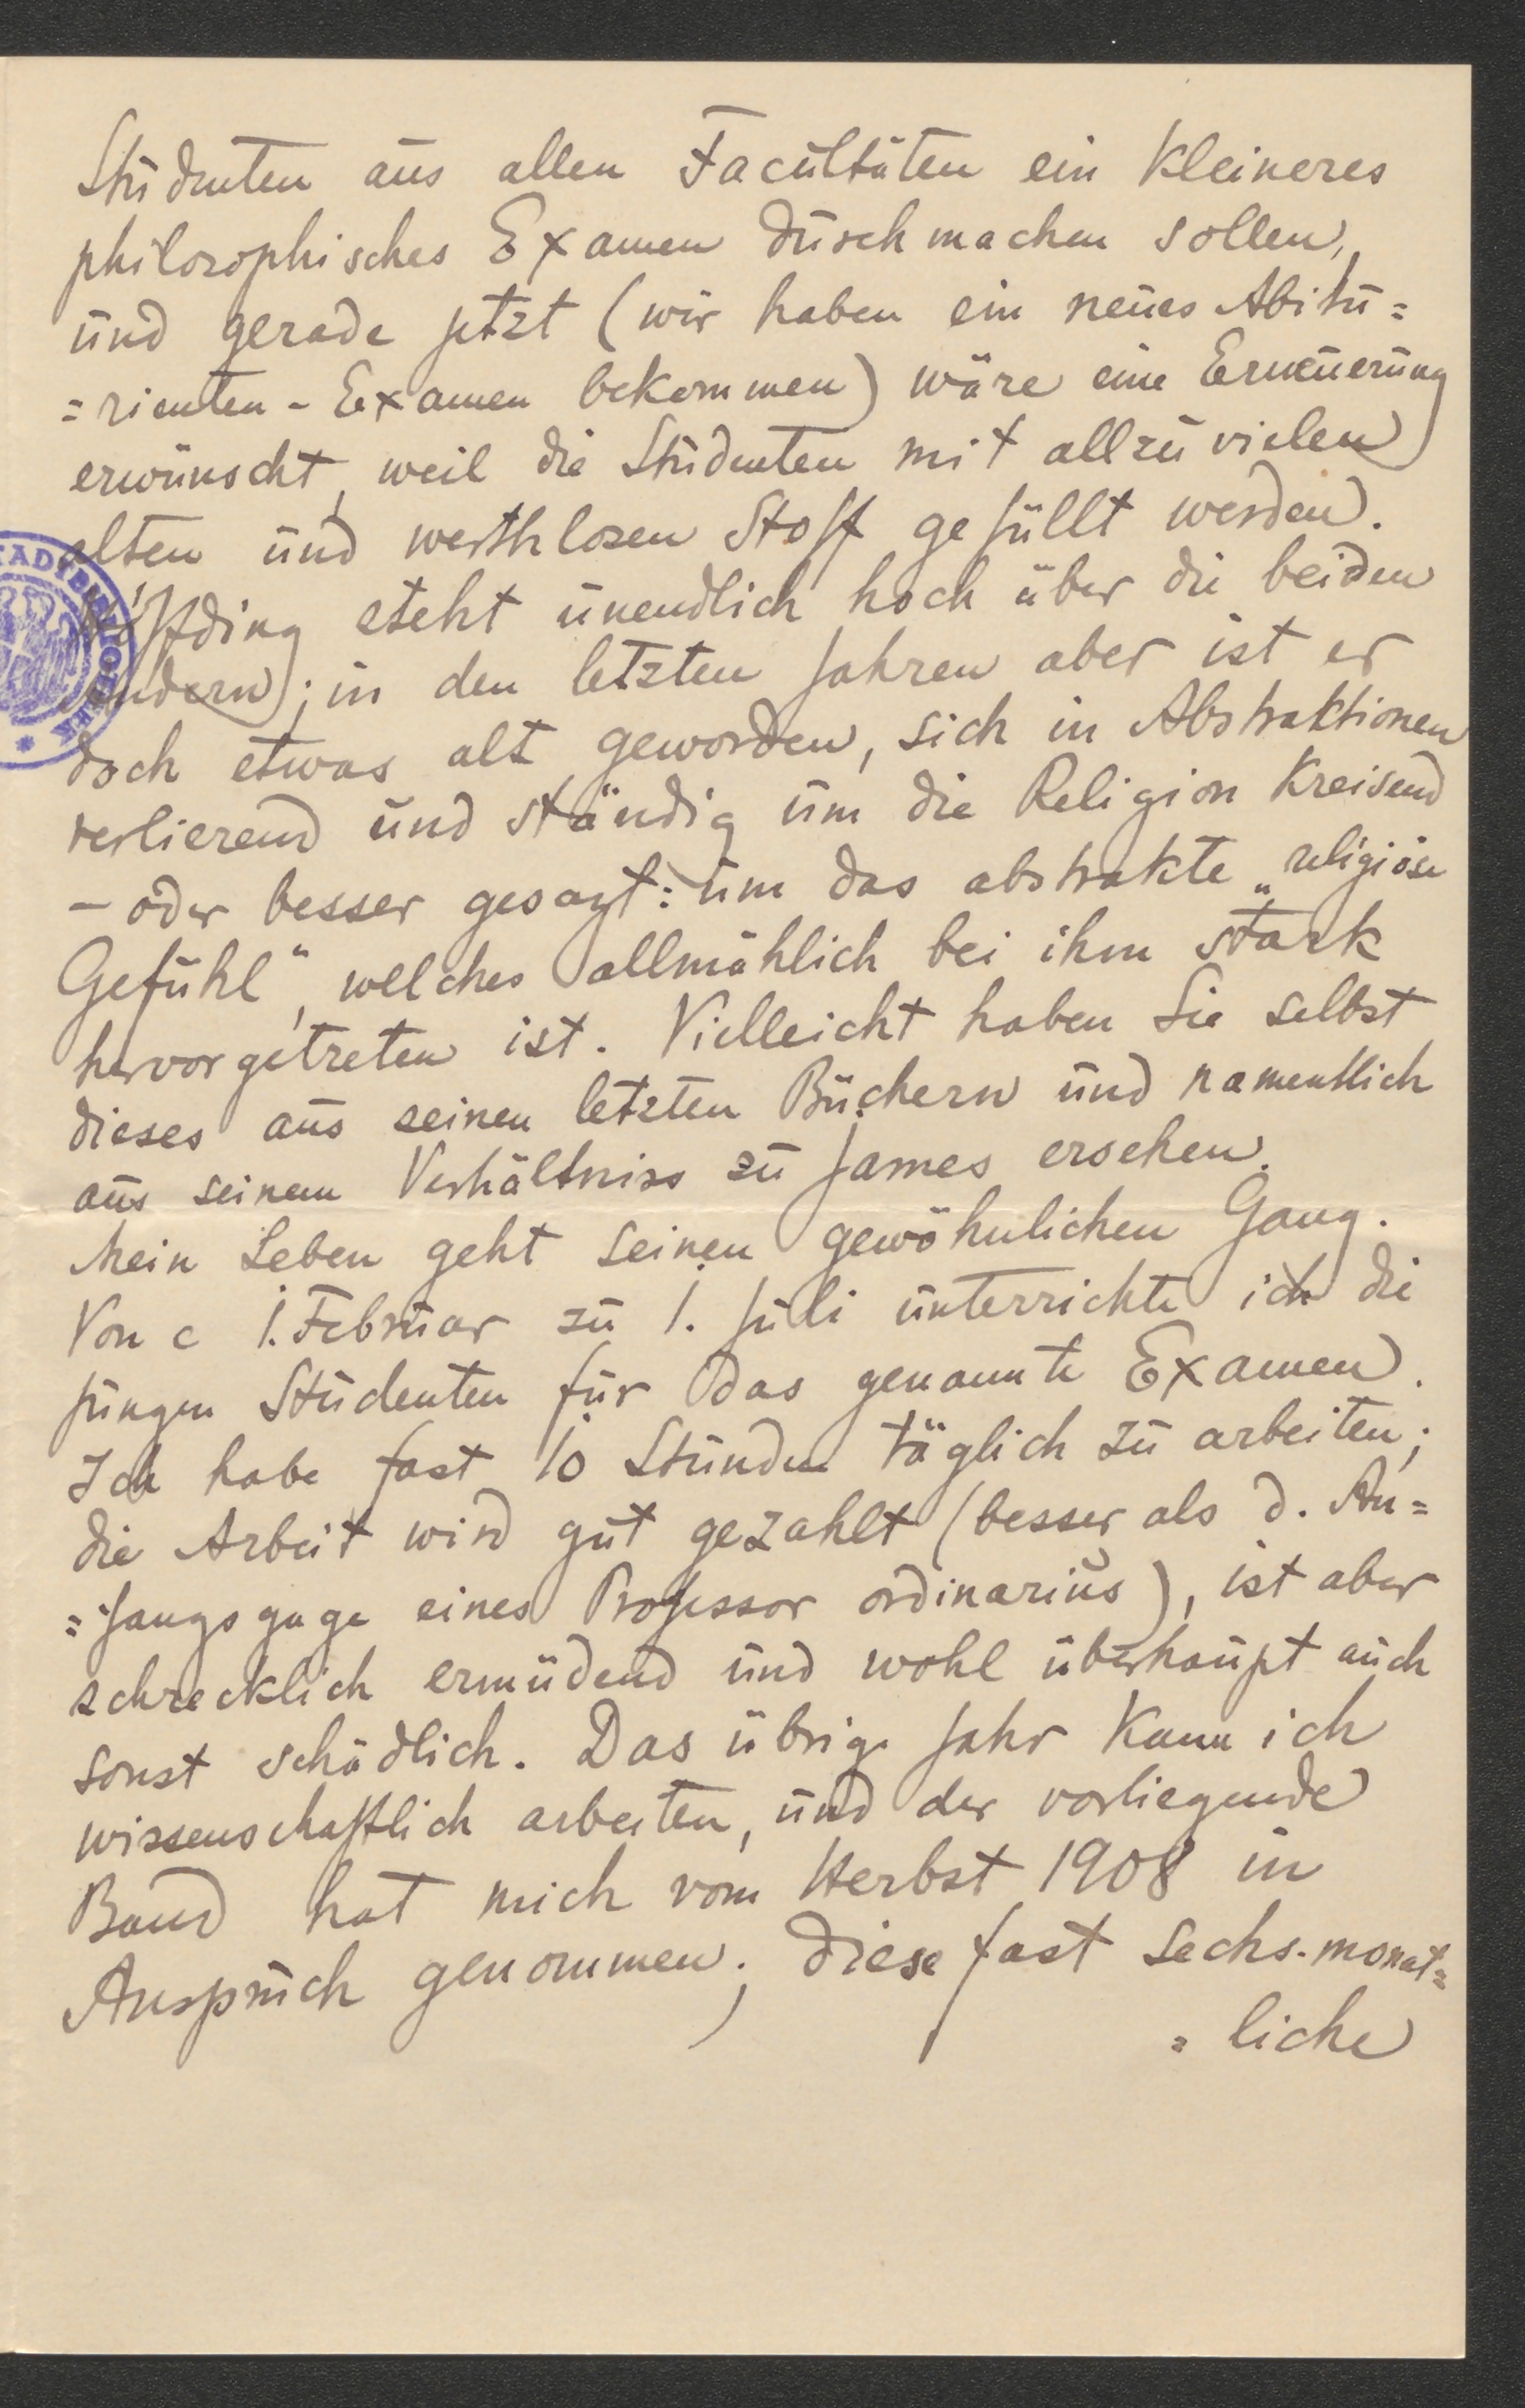 Studenten aus allen Facultäten ein kleineres
philosophisches Examen durchmachen sollen,
und gerade jetzt (wir haben ein neues Abitu=
=rienten-Examen bekommen) wäre eine Erneuerung
erwünscht, weil die Studenten mit allzuvielen
alten und werthlosen Stoff gefüllt werden.
Höffding steht unendlich hoch über die beiden
andern; in den letzten Jahren aber ist er
doch etwas alt geworden, sich in Abstraktionen
verlierend und ständig um die Religion kreisend
– oder besser gesagt: um das abstrakte „religiöse
Gefühl“, welches allmählich bei ihm stark
hervorgetreten ist. Vielleicht haben Sie selbst
dieses aus seinen letzten Büchern und namentlich
aus seinem Verhältniss zu James ersehen.
Mein Leben geht seinen gewöhnlichen Gang.
Von c 1. Februar zu 1. Juli unterrichte ich die
jungen Studenten für das genannte Examen.
Ich habe fast 10 Stunden täglich zu arbeiten;
die Arbeit wird gut gezahlt (besser als d. An=
=fangsgage eines Professor ordinarius), ist aber
schrecklich ermüdend und wohl überhaupt auch
sonst schädlich. Das übrige Jahr kann ich
wissenschaftlich arbeiten, und der vorliegende
Band hat mich vom Herbst 1908 in
Anspruch genommen; diese fast sechs-monat=
=liche